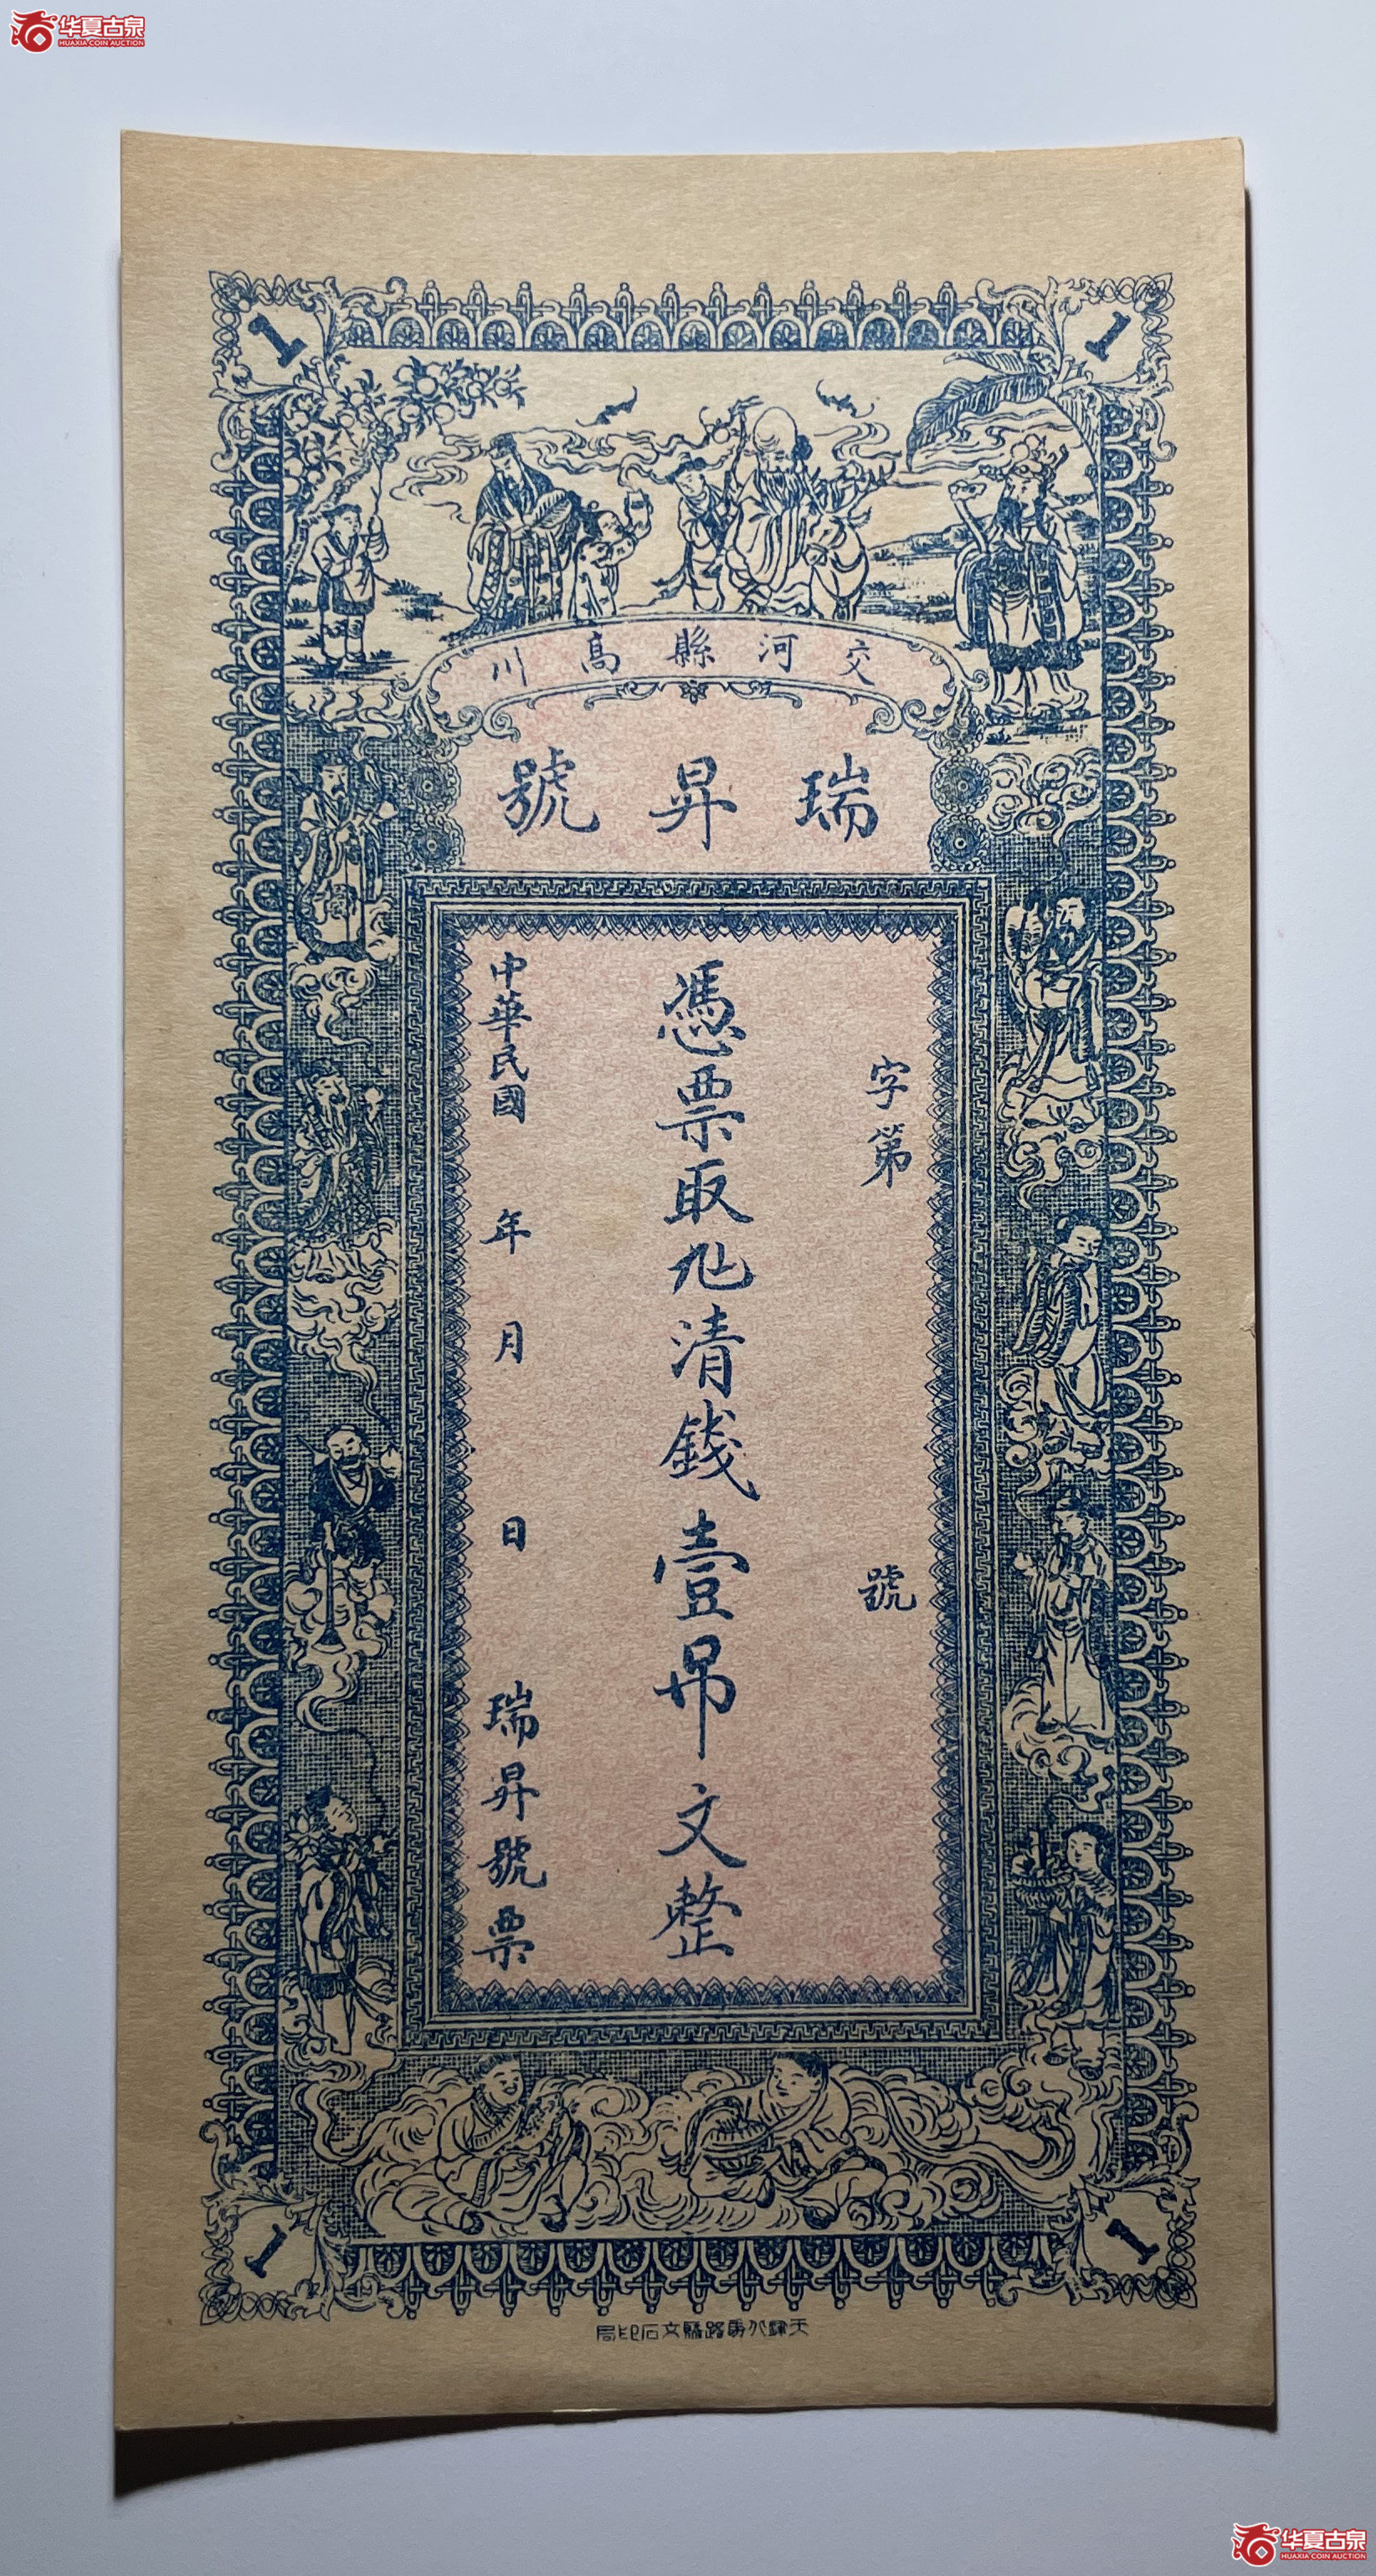 华夏古泉
HUAXIA COIN AUCTION
1 1
交河縣高川
瑞昇號
字第 號
憑票取 清錢壹吊文整
中華民國 年 月 日 瑞昇號票
1 1
天津北馬路 文石印局
华夏古泉
HUAXIA COIN AUCTION